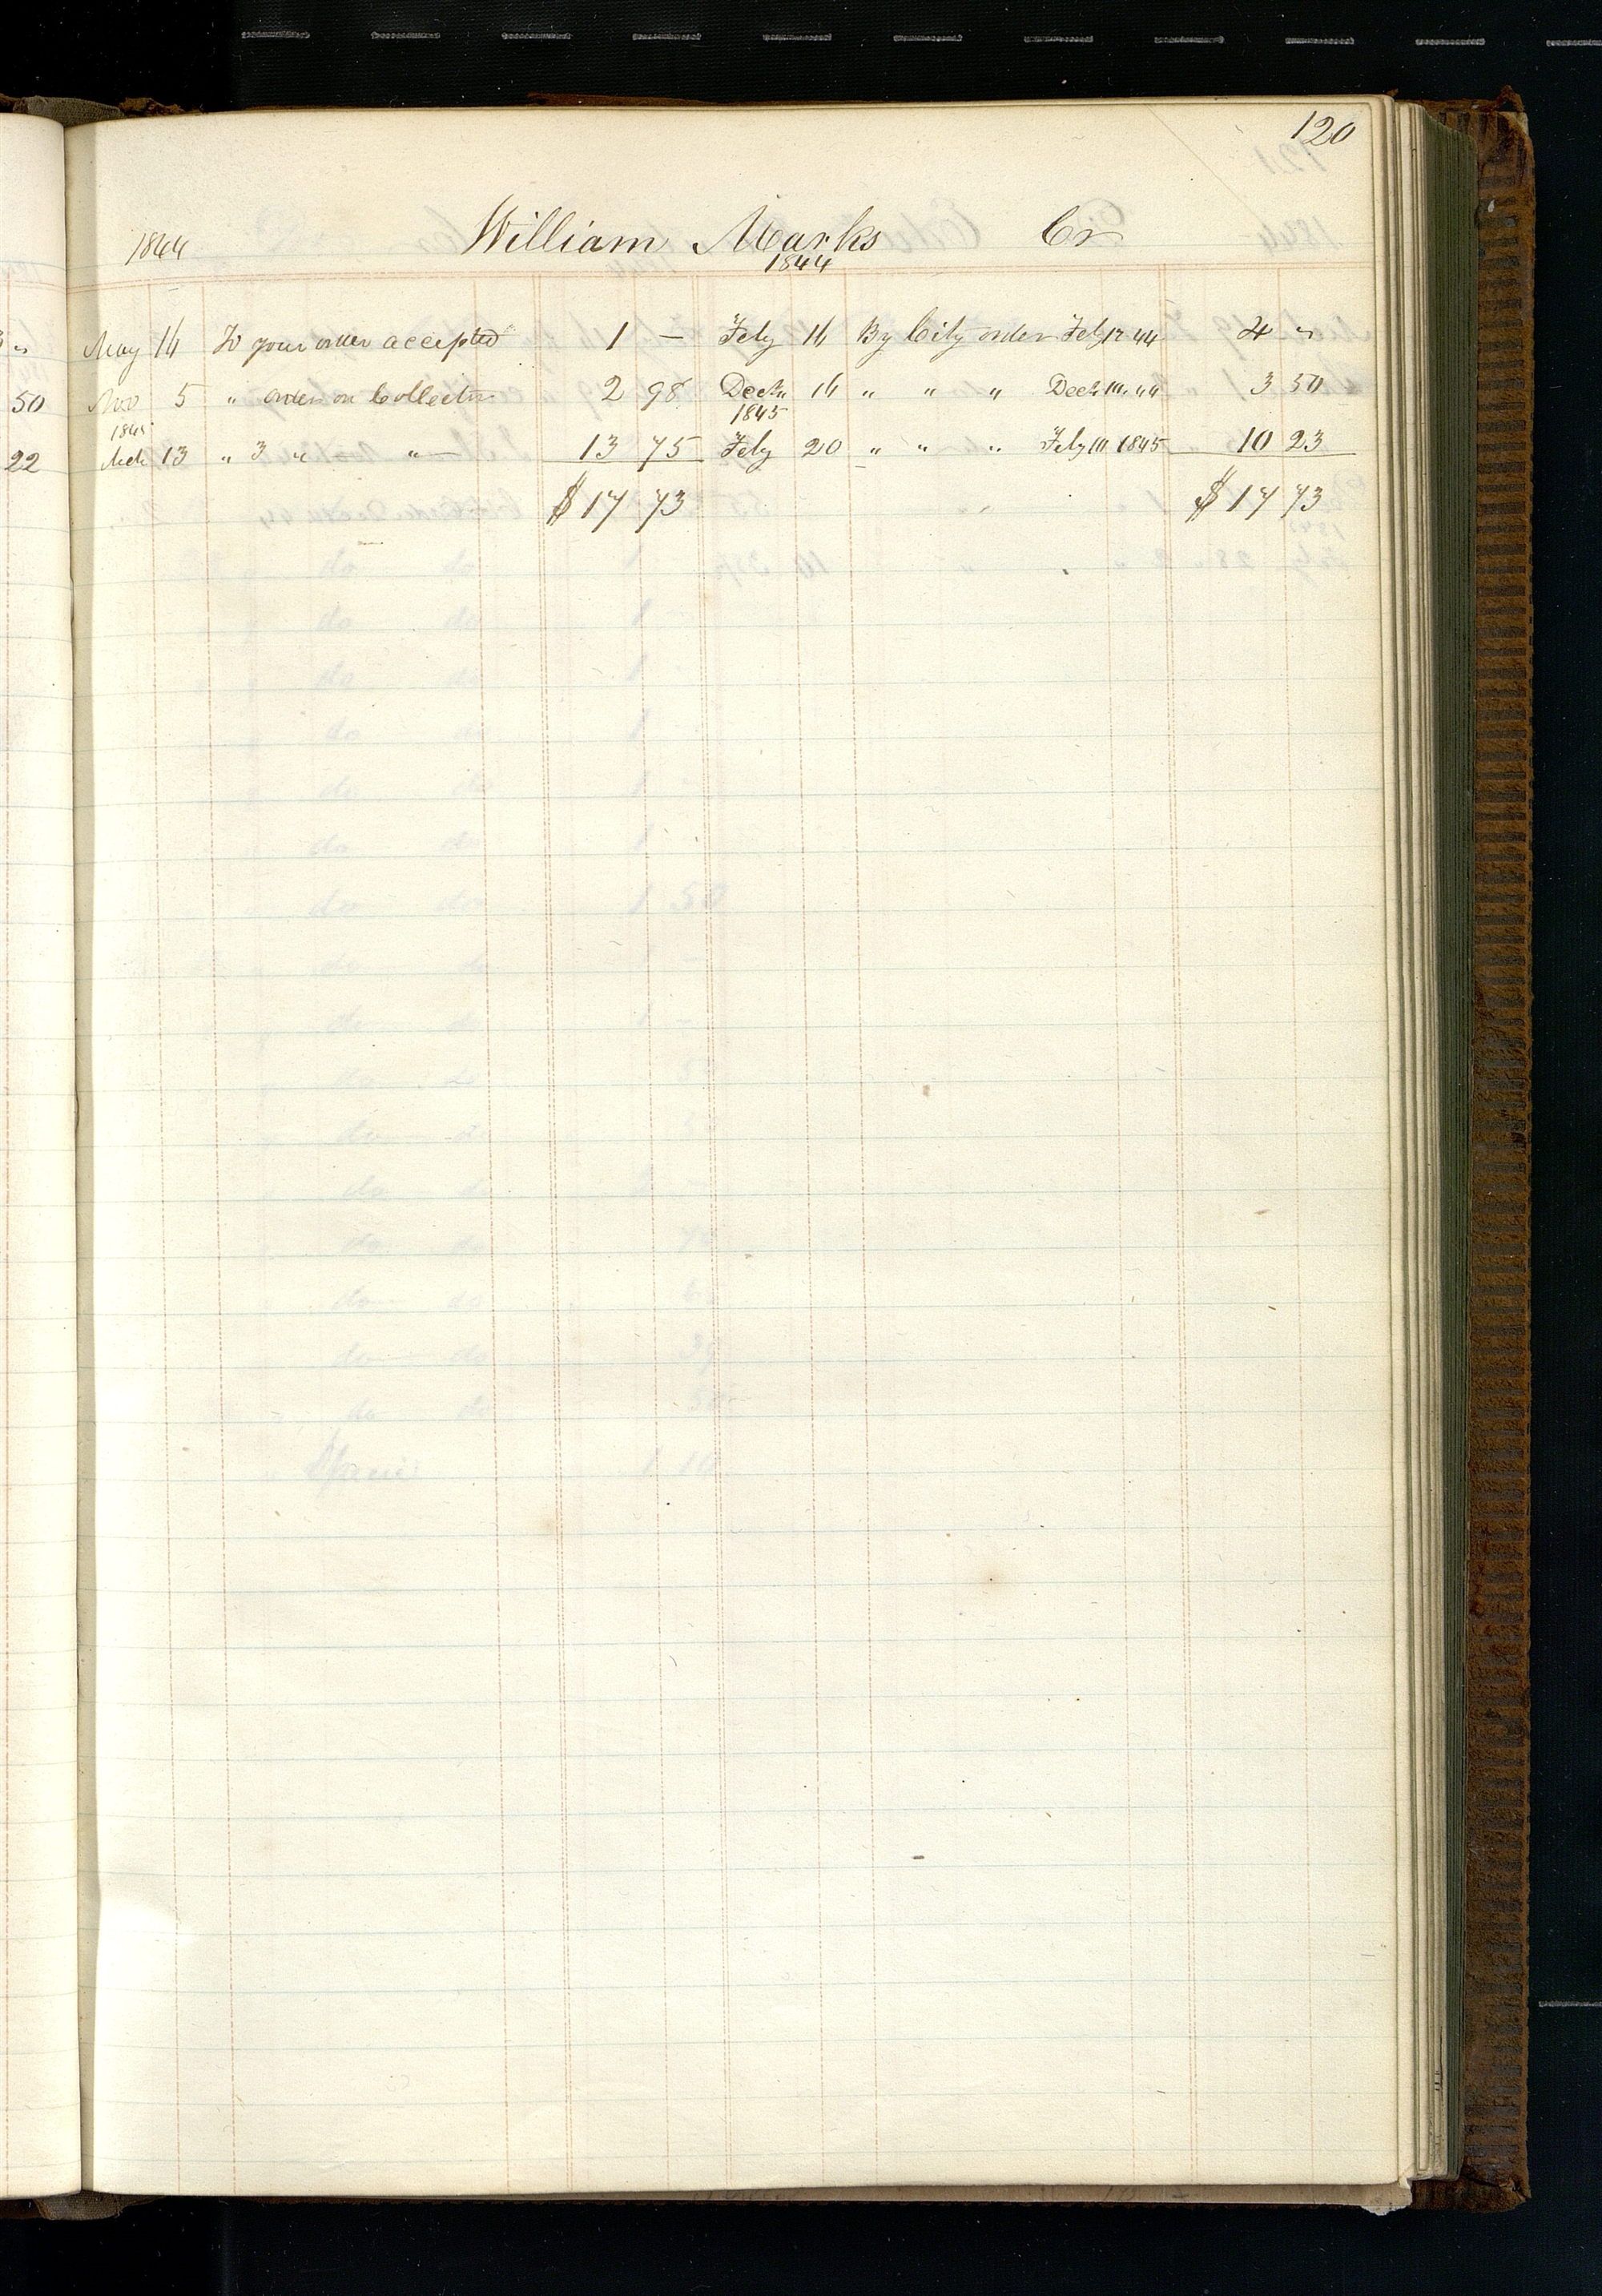 120
1844 William Marks Cr
1844
May 14 To your order accepted 1 — Feby 14 By City order Feby 12 44 4 "
50 Nov 5 " orders on Collector 2 98 Decr 14 " " " Decr 14 44 3 50
1845 1845
22 Mch 13 " 3 " " 13 75 Feby 20 " " " Feby 10 1845 10 23
$17 73 $17 73